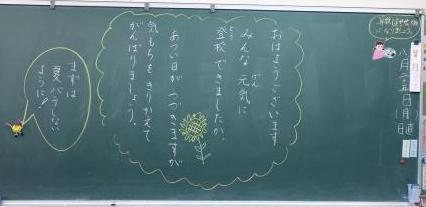 八月二十五日(月)
日直
おはようございます
みんな元気に
登校できましたか。
あつい日がつづきますが
気もちをきりかえて
がんばりましょう。
まずは
夏バテしない
ように!